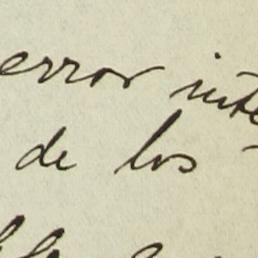 error inte
de los